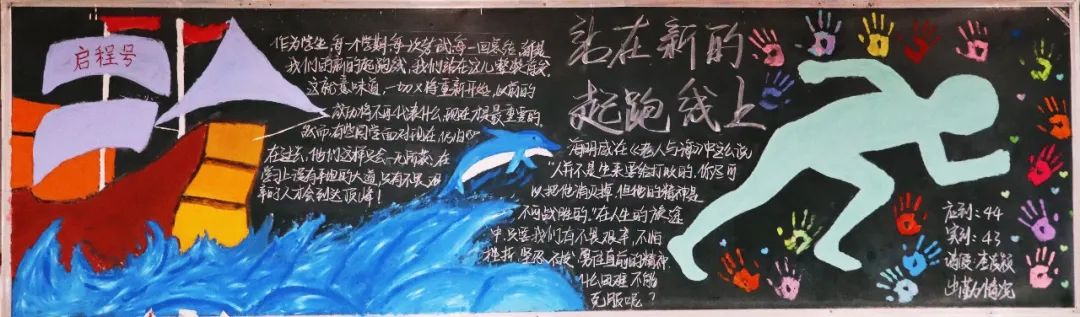 启程号
作为学生,每一个学期,每一次考试,每一回总结,都是
我们的新的起跑线,我们站在这儿整装待发,
这就意味道,一切又将重新开始,以前的
成功将不再代表什么,现在才是最重要的,
然而有些同学面对现在,仍旧
在过去,他们这样只会一无所获,在
学习上没有平坦的大道,只有不畏艰
辛的人才会到达顶峰!
站在新的
起跑线上
海明威在《老人与海》中这么说
“人并不是生来要给打败的,你尽可
以把他消灭掉,但他的精神是
不可战胜的。”在人生的旅途
中,只要我们有不畏艰辛,不怕
挫折,坚忍不拔,勇往直前的精神,
什么困难不能
克服呢?
应到:44
实到:43
请假:李
出勤情况